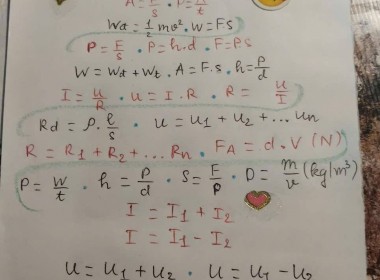 A = F/s · P = A/t
Wd = 1/2 mv² · W = Fs
P = F/s · P = h·d · F = PS
W = Wd + Wt · A = F·s · h = P/d
I = U/R · U = I·R · R = U/I
Rd = ρ · l/s · U = U1 + U2 + ... Un
R = R1 + R2 + ... Rn · FA = d·V (N)
P = W/t · h = P/d · S = F/P · D = m/v (kg/m³)
I = I1 + I2
I = I1 - I2
U = U1 + U2 · U = U1 - U2